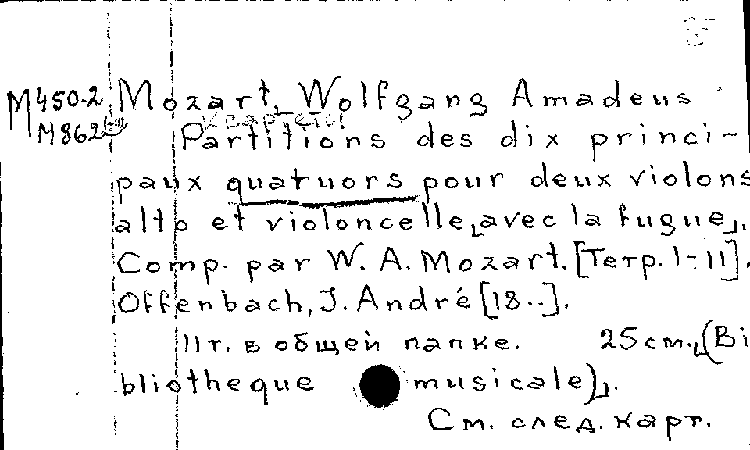 M450-2 Mozart, Wolfgang Amadeus
Квартеты
M862 Partitions des dix princi-
paux quatuors pour deux violons
alto et violoncelle „avec la fugue„.
Comp. par W. A. Mozart. [Тетр. 1-11].
Offenbach, J. André [18..].
11 т. в общей папке. 25 cm. „(Bi
bliotheque musicale)„.
См. след. карт.